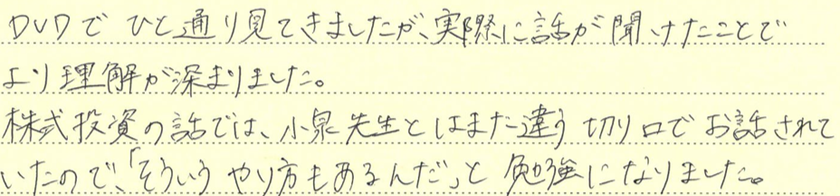 DVDで ひと通り見てきましたが、実際に話が聞けたことで
より理解が深まりました。
株式投資の話では、小泉先生とはまた違う切り口でお話されて
いたので、「そういうやり方もあるんだ」と勉強になりました。